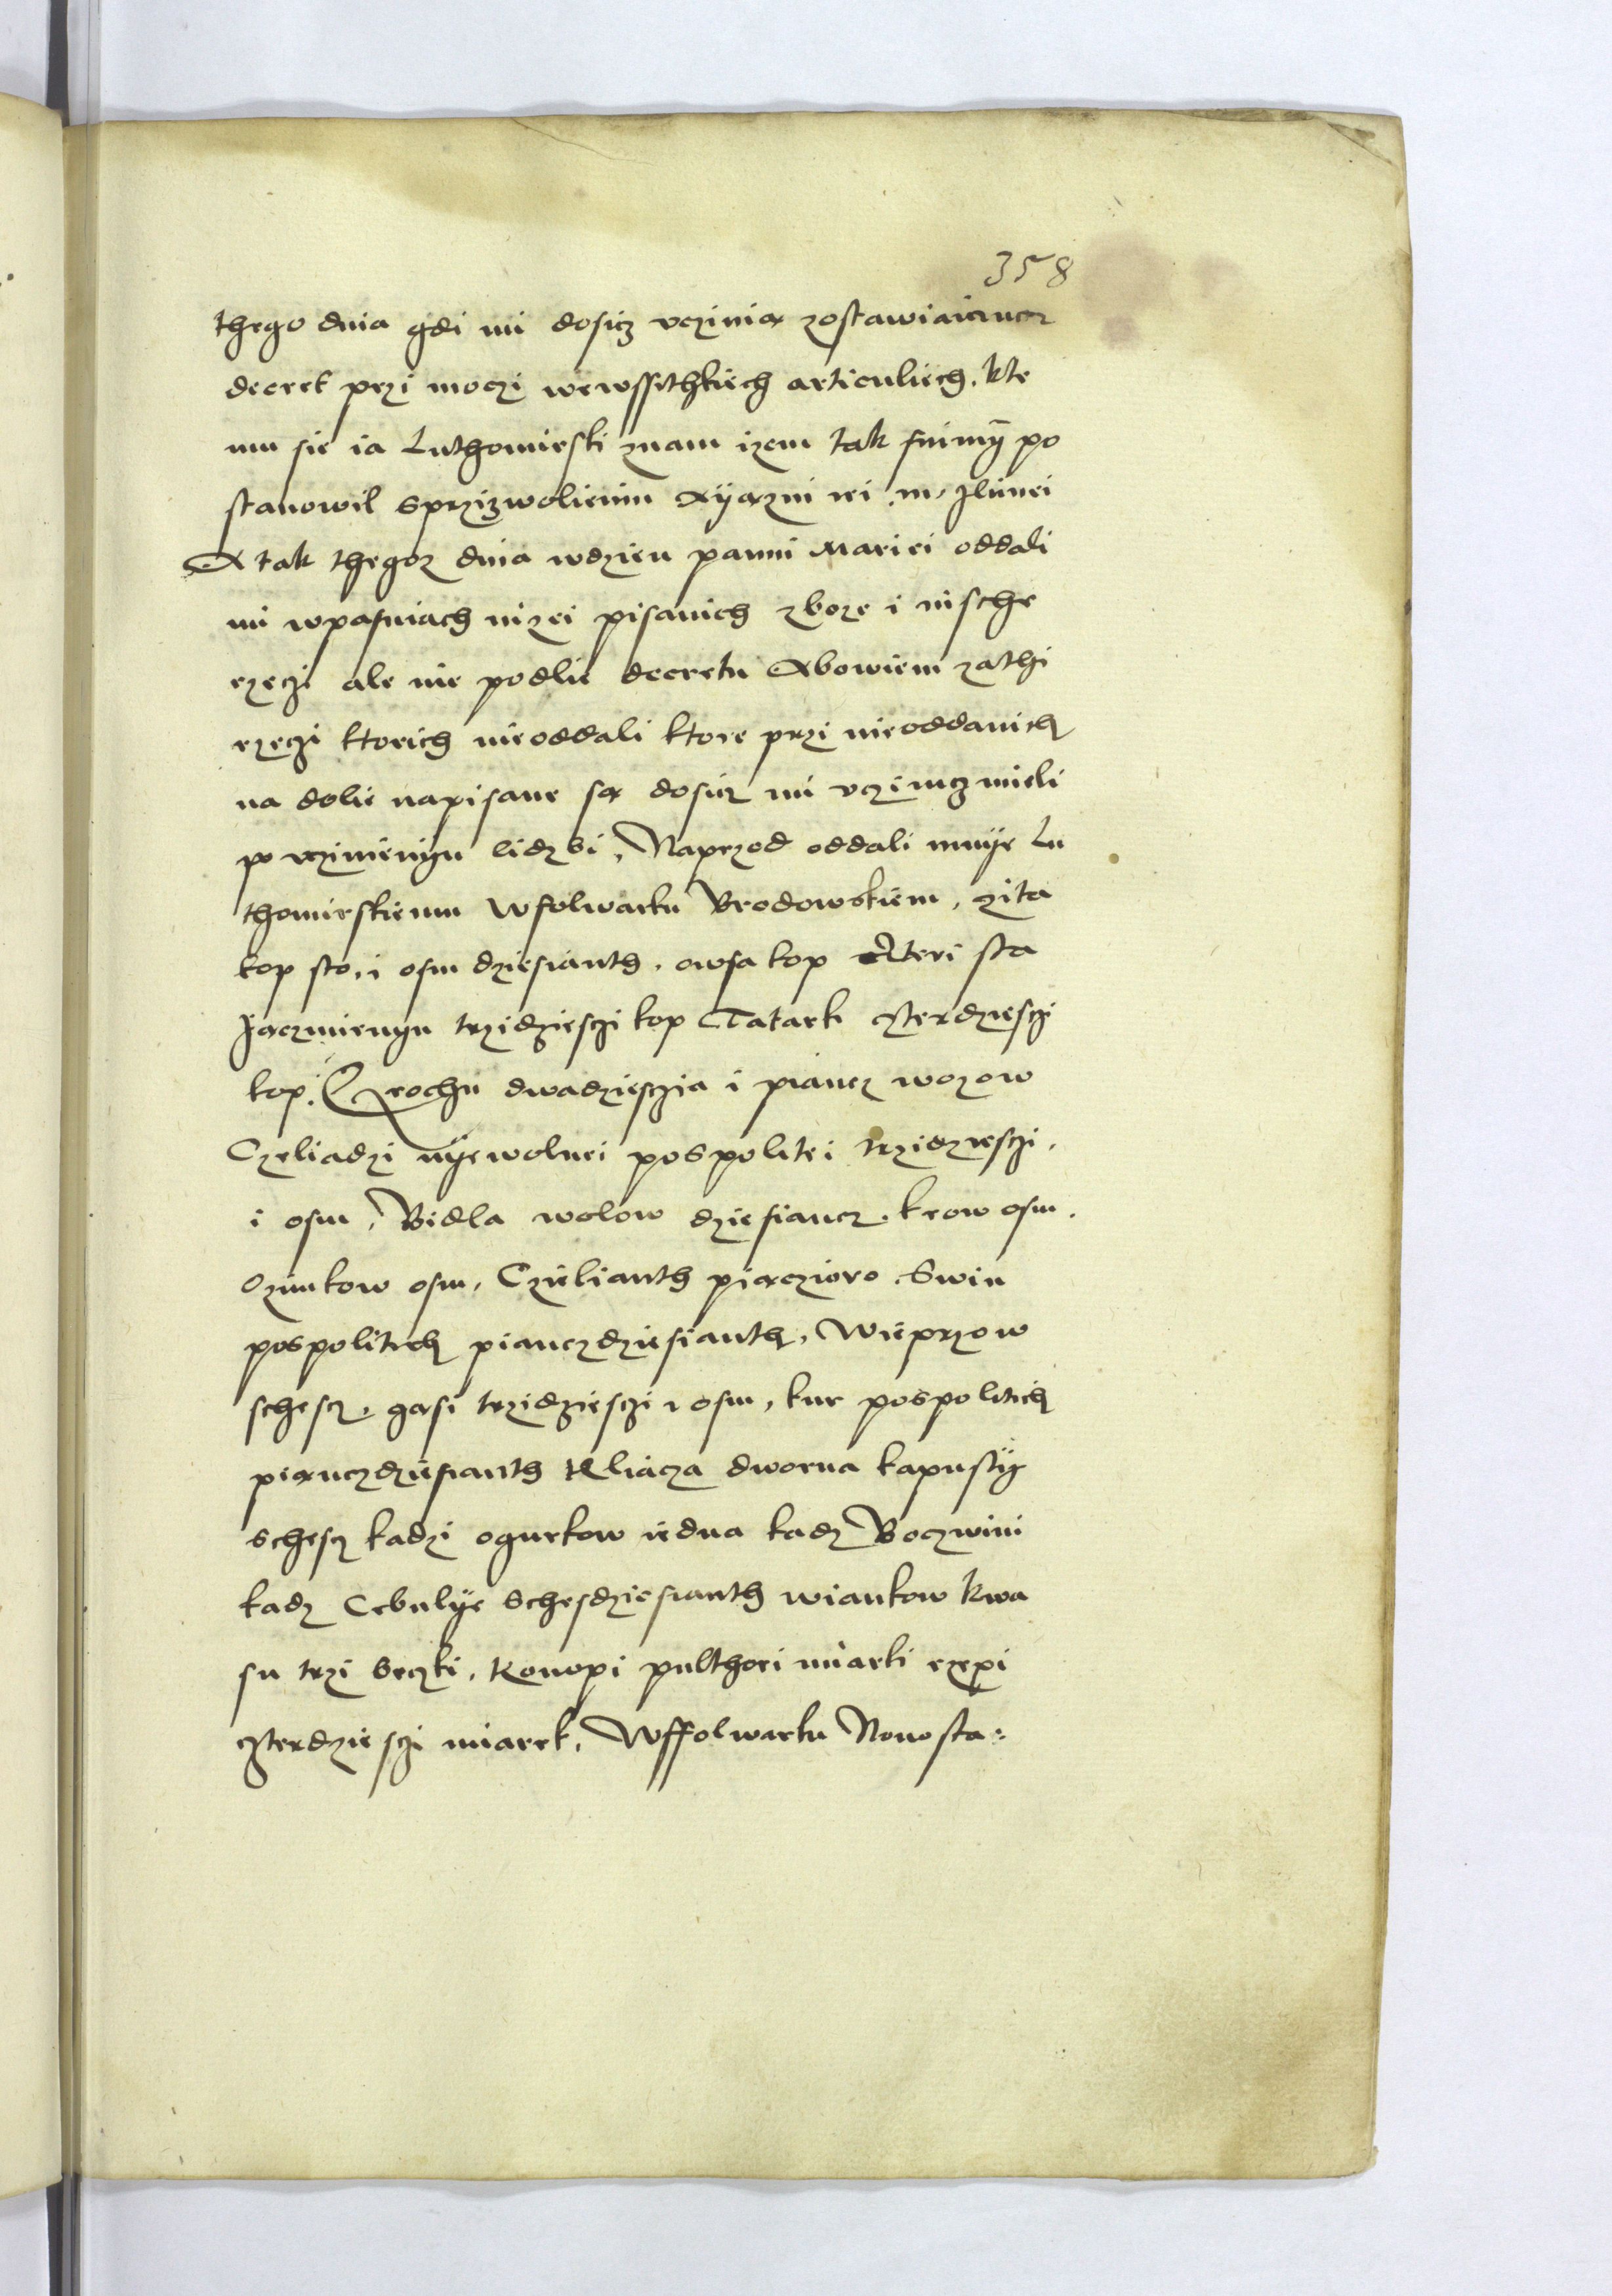 358
thego dnia gdi mi dosicz vczinią zostawiaiancz
decret przi moczi wewssithkiech articuliech. kte
mu sie ia Luthomirski znam izem tak snimÿ po
stanowil sprzizwolienim Xÿązni iei m. Ilinei
A tak thegoz dnia wdzien panni Mariei oddali
mi wpasniach nizei pisanich zboze i insche
rzeczi ale nie podlie decretu Abowiem zathi
rzeczi ktorich nieoddali ktore przi nieoddanich
na dolie napisane są dosicz mi vczinicz mieli
po vczinienÿu lidzbi, Naprzod oddali mnÿe Lu
thomirskiemu Wfolwarku Brodowskiem, zita
kop sto. i osm dziesianth. owsa kop czteri sta
Jęczmienÿu trzidziesczi kop Tatarki czterdziesczi
kop. Grochu dwadziesczia i piancz wozow
Czeliadzi nÿewolnei pospolitei trzidziesczi.
i osm, Bidla wolow dziesiancz. krow osm.
Ozimkow osm, Czielianth pięczioro. Swin
pospolitich pianczdziesianth, Wieprzow
schescz, gąsi trzidziesczi i osm, kur pospolitich
pianczdziesianth Kliacza dworna kapustÿ
schescz kadzi ogurkow iedna kadz Boczwini
kadz Cebulÿe Schesdziesianth wiankow kwa
su trzi beczki, Konopi pulthori miarki rzepi
czterdziesczi miarek, Wffolwarku Nowosta: